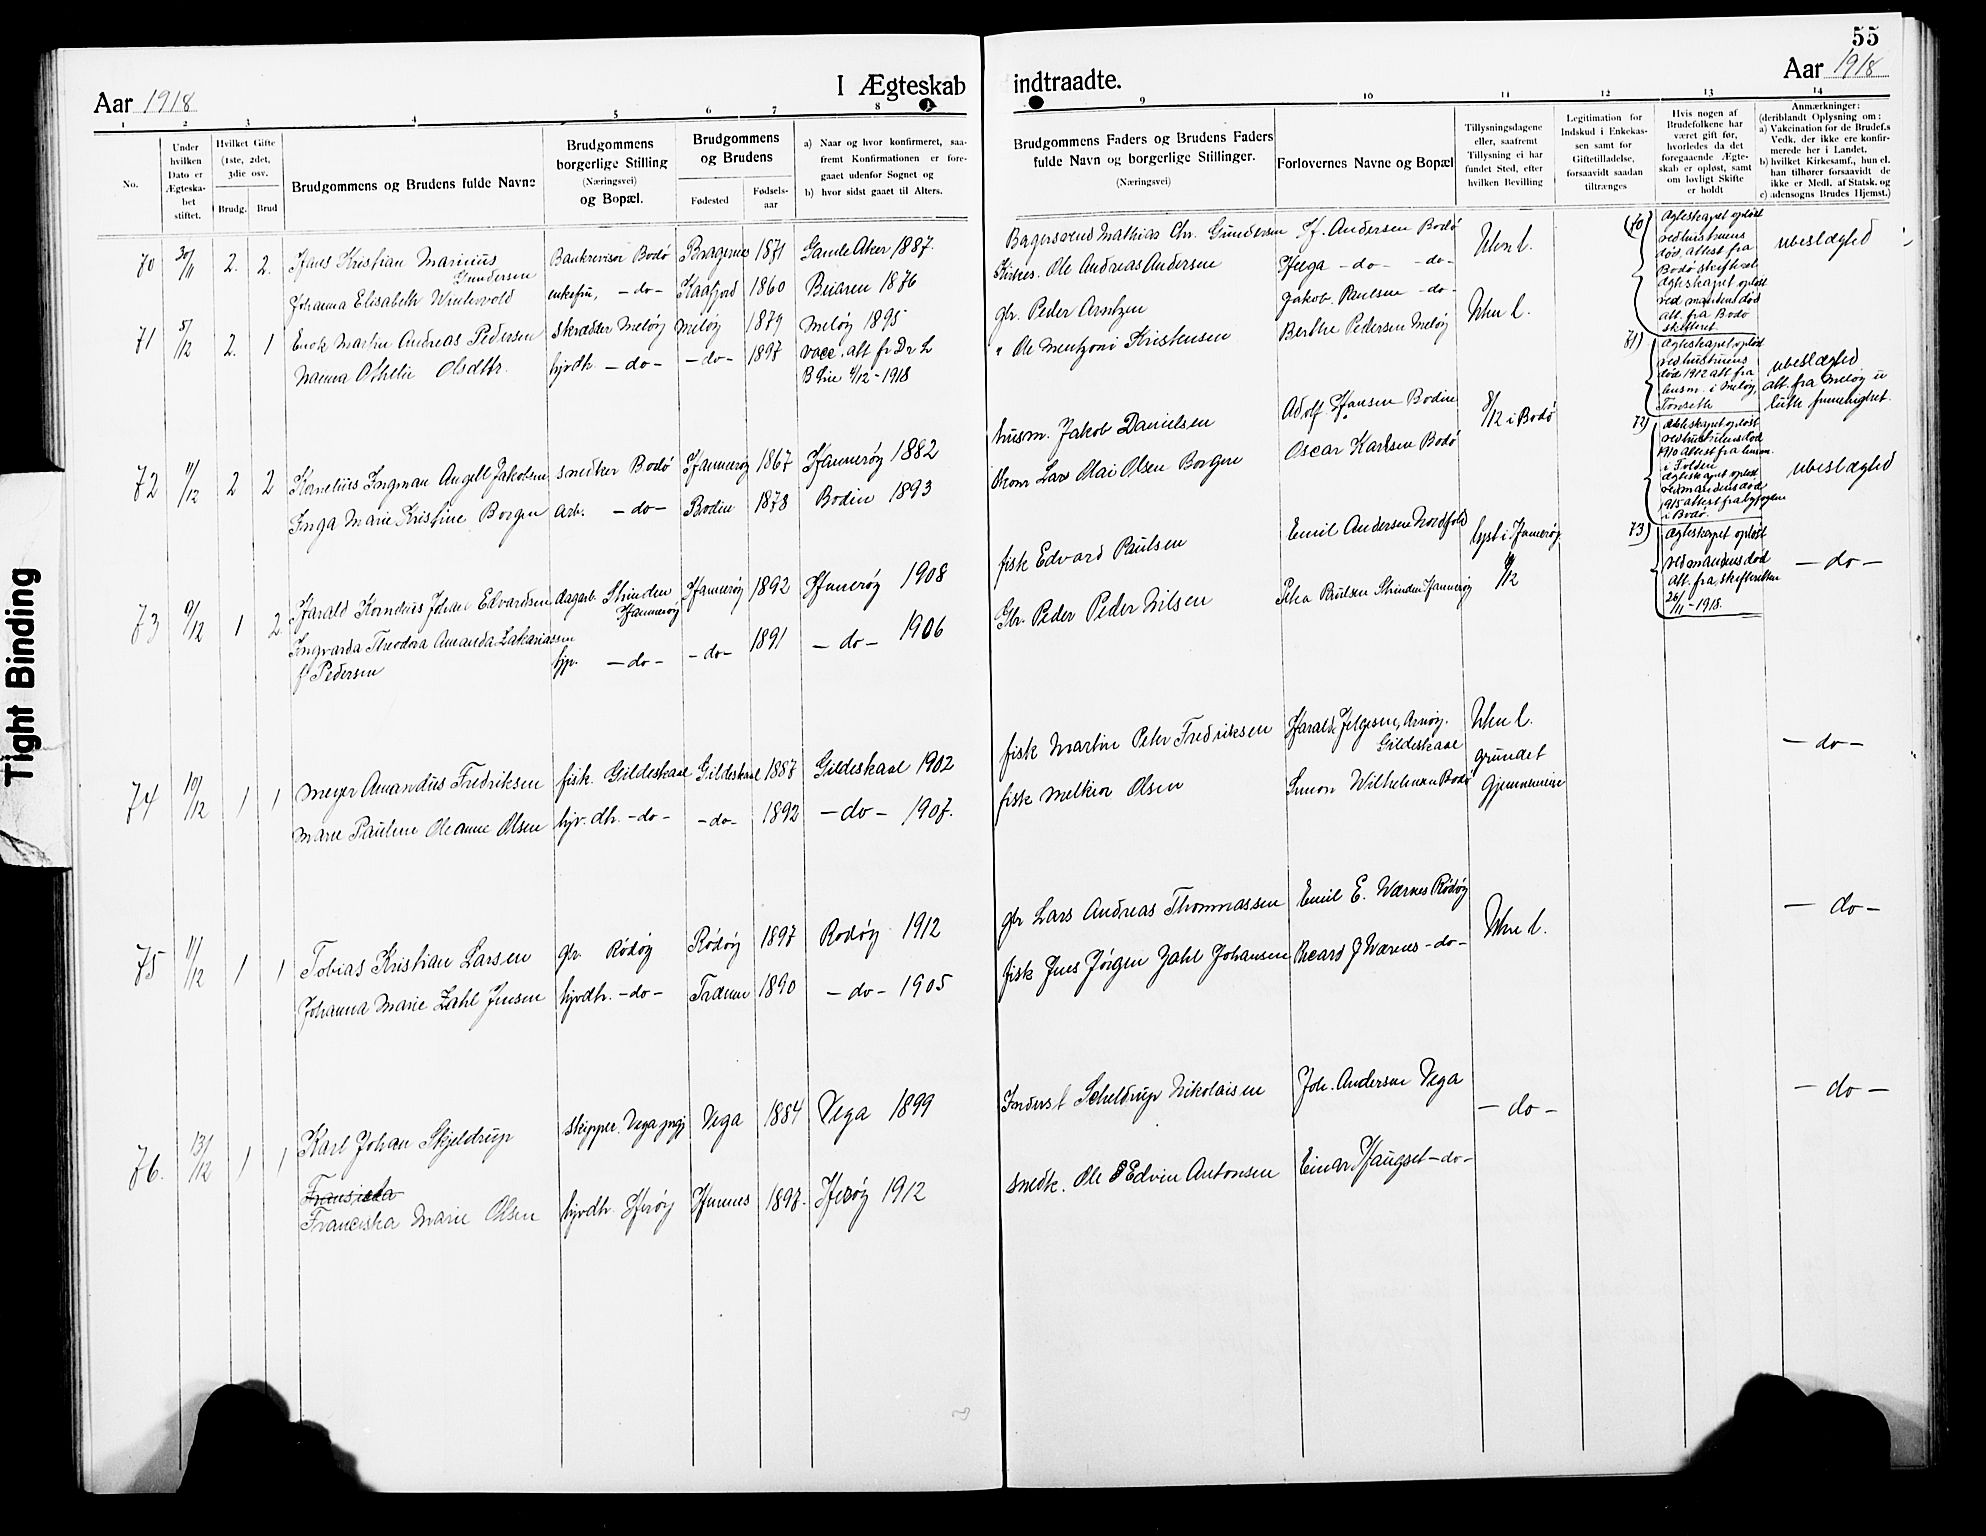 55
Aar 1918
I Ægteskab
indtraadte.
Aar 1918
1 2 3 4 5 6 7 8
9 10 11 12 13 14
No.
Under hvilken Dato er Ægteskabet stiftet.
Hvilket Gifte (1ste, 2det, 3die osv.
Brudg. Brud
Brudgommens og Brudens fulde Navne
Brudgommens borgerlige Stilling (Næringsvei) og Bopæl.
Brudgommens og Brudens
Fødested
Fødselsaar
a) Naar og hvor konfirmeret, saafremt Konfirmationen er foregaaet udenfor Sognet og
b) hvor sidst gaaet til Alters.
Brudgommens Faders og Brudens Faders fulde Navn og borgerlige Stillinger.
(Næringsvei)
Forlovernes Navne og Bopæl
Tillysningsdagene eller, saafremt Tillysning ei har fundet Sted, efter hvilken Bevilling
Legitimation for Indskud i Enkekassen samt for Giftetilladelse, forsaavidt saadan tiltrænges
Hvis nogen af Brudefolkene har været gift før, hvorledes da det foregaaende Ægteskab er opløst, samt om lovligt Skifte er holdt
Anmærkninger:
(deriblandt Oplysning om:
a) Vakcination for de Brudef.s Vedk. der ikke ere konfirmerede her i Landet.
b) hvilket Kirkesamf., hun el. han tilhører forsaavidt de ikke er Medl. af Statsk. og
c) udensogns Brudes Hjemst.)
70 30/11 2. 2. Hans Kristian Marinius Gundersen Bankrevisor Bodø Bragernes 1871 Gamle Aker 1887.
Johanna Elisabeth Wintervold enkefru, -do- Kaafjord 1860 Beiaren 1876
Bagersvend Mathias Chr. Gundersen H. Andersen Bodø
Ole Andreas Andersen Helga -do- -do-
70) Ægteskapet opløst ved hustruens død, attest fra Bodø skifteret.
ægteskapet opløst ved mandens død att. fra Bodø skifteret.
ubeslægted
71 5/12 2. 1 Martin Andreas Pedersen skrædder Meløy Meløy 1879 Meløy 1895
Olsdttr. -do- -do- 1897 vacc. att fr Dr 4/12-1918
gbr. Peder Arntzen Jakob Paulsen -do-
" Ole Mentzoni Kristensen Berthe Pedersen Meløy
71) Ægteskapet opløst ved hustruens død 1912 att fra lensm. i Meløy,
ubeslægted
att. fra Meløy
72 11/12 2 2 Kornelius Ingman Angell Jakobsen snedker Bodø Hammerøy 1867 Hammerøy 1882
Inga Marie Kristine Borgen arb. -do- Bodin 1873 Bodin 1893
husm. Jakob Danielsen Adolf Hansen Bodin 8/12 i Bodø
Lars Olai Olsen Borgen Oscar Karlsen Bodø
72) Ægteskapet opløst ved hustruens død 1910 attest fra lensm. i Folden
ægteskapet opløst ved mandens død 1915 attest fra byfogden i Bodø.
ubeslægted
73 9/12 1 2 Harald Kornelius Johan Edvardsen Strinden Hammerøy Hammerøy 1892 Hammerøy 1908
Ingvarda Theodora Amanda Zakariassen f. Pedersen -do- -do- 1891 -do- 1906
fisk Edvard Paulsen Emil Andersen Nordfold lyst i Hamerøy
Gbr. Peder Peder Nilsen Paulsen Strinden Hammerøy
73) Ægteskapet opløst ved mandens død att. fra skifteretten 26/11-1918.
-do-
74 10/12 1 1 Meyer Amandus Fredriksen fisk. Gildeskaal Gildeskaal 1887 Gildeskaal 1902
Marie Pauline Oleanne Olsen hjv. dtr. -do- -do- 1892 -do- 1907.
fisk Martin Peter Fredriksen Harald Helgesen, Arnøy. Gildeskaal
fisk Melkior Olsen Simon Wilhelmsen Bodø
grundet Gjennemreise
-do-
75 11/12 1 1 Tobias Kristian Larsen gbr Rødøy Rødøy 1897 Rødøy 1912
Johanna Marie Zahl Jensen hjvdtr. -do- Træna 1890 -do- 1905
gbr Lars Andreas Thommassen Emil E. Wærnes Rødøy
fisk Jens Jørgen Zahl Johansen Ricard J Wærnes -do-
-do-
76. 13/12 1 1 Karl Johan Skjeldrup skipper. Vega Vega 1884 Vega 1899
Fransicka
Franciska Marie Olsen hjvdtr. Herøy Hemnes 1897. Herøy 1912
Scheldrup Nikolaisen Joh. Andersen Vega -do- -do-
snedk. Ole Edvin Antonsen Einar Haugset -do-
Tight Binding